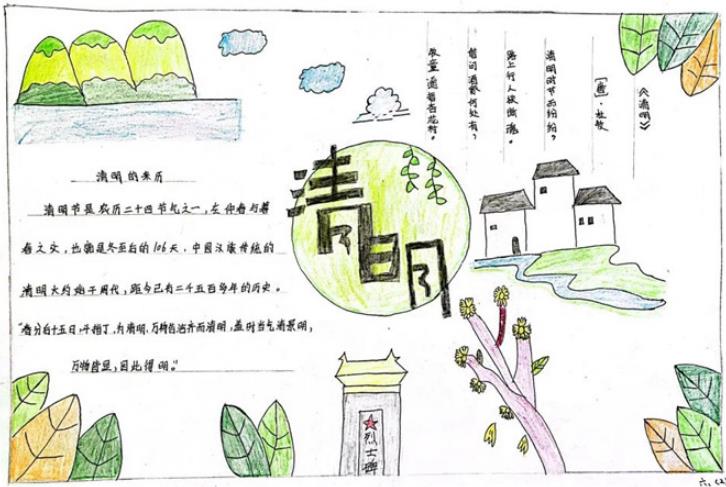 《清明》
[唐]·杜牧
清明时节雨纷纷?
路上行人欲断魂。
借问酒家何处有?
牧童遥指杏花村。
清明
清明的来历
清明节是农历二十四节气之一,在仲春与暮
春之交,也就是冬至后的106天。中国汉族传统的
清明大约始于周代,距今已有二千五百多年的历史。
"春分后十五日,斗指丁,为清明,万物皆洁齐而清明,盖时当气清景明,
万物皆显,因此得明。"
烈士碑